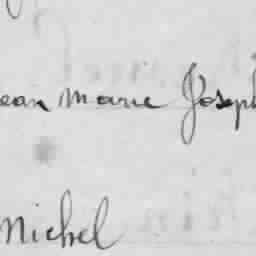 ean Marie Joseph
Michel